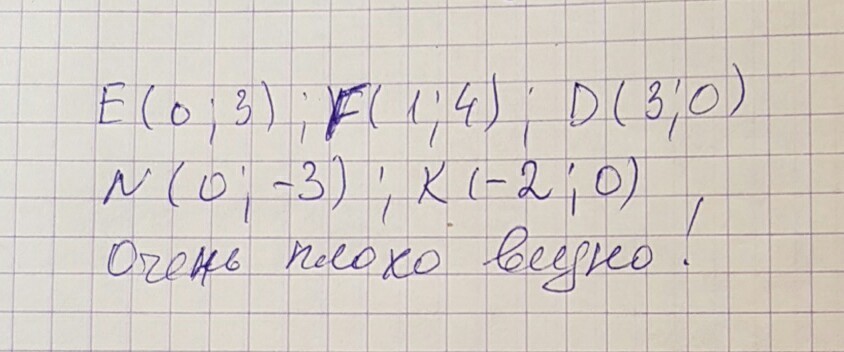 E(0;3); F(1;4); D(3;0)
N(0;-3); K(-2;0)
Очень плохо видно!